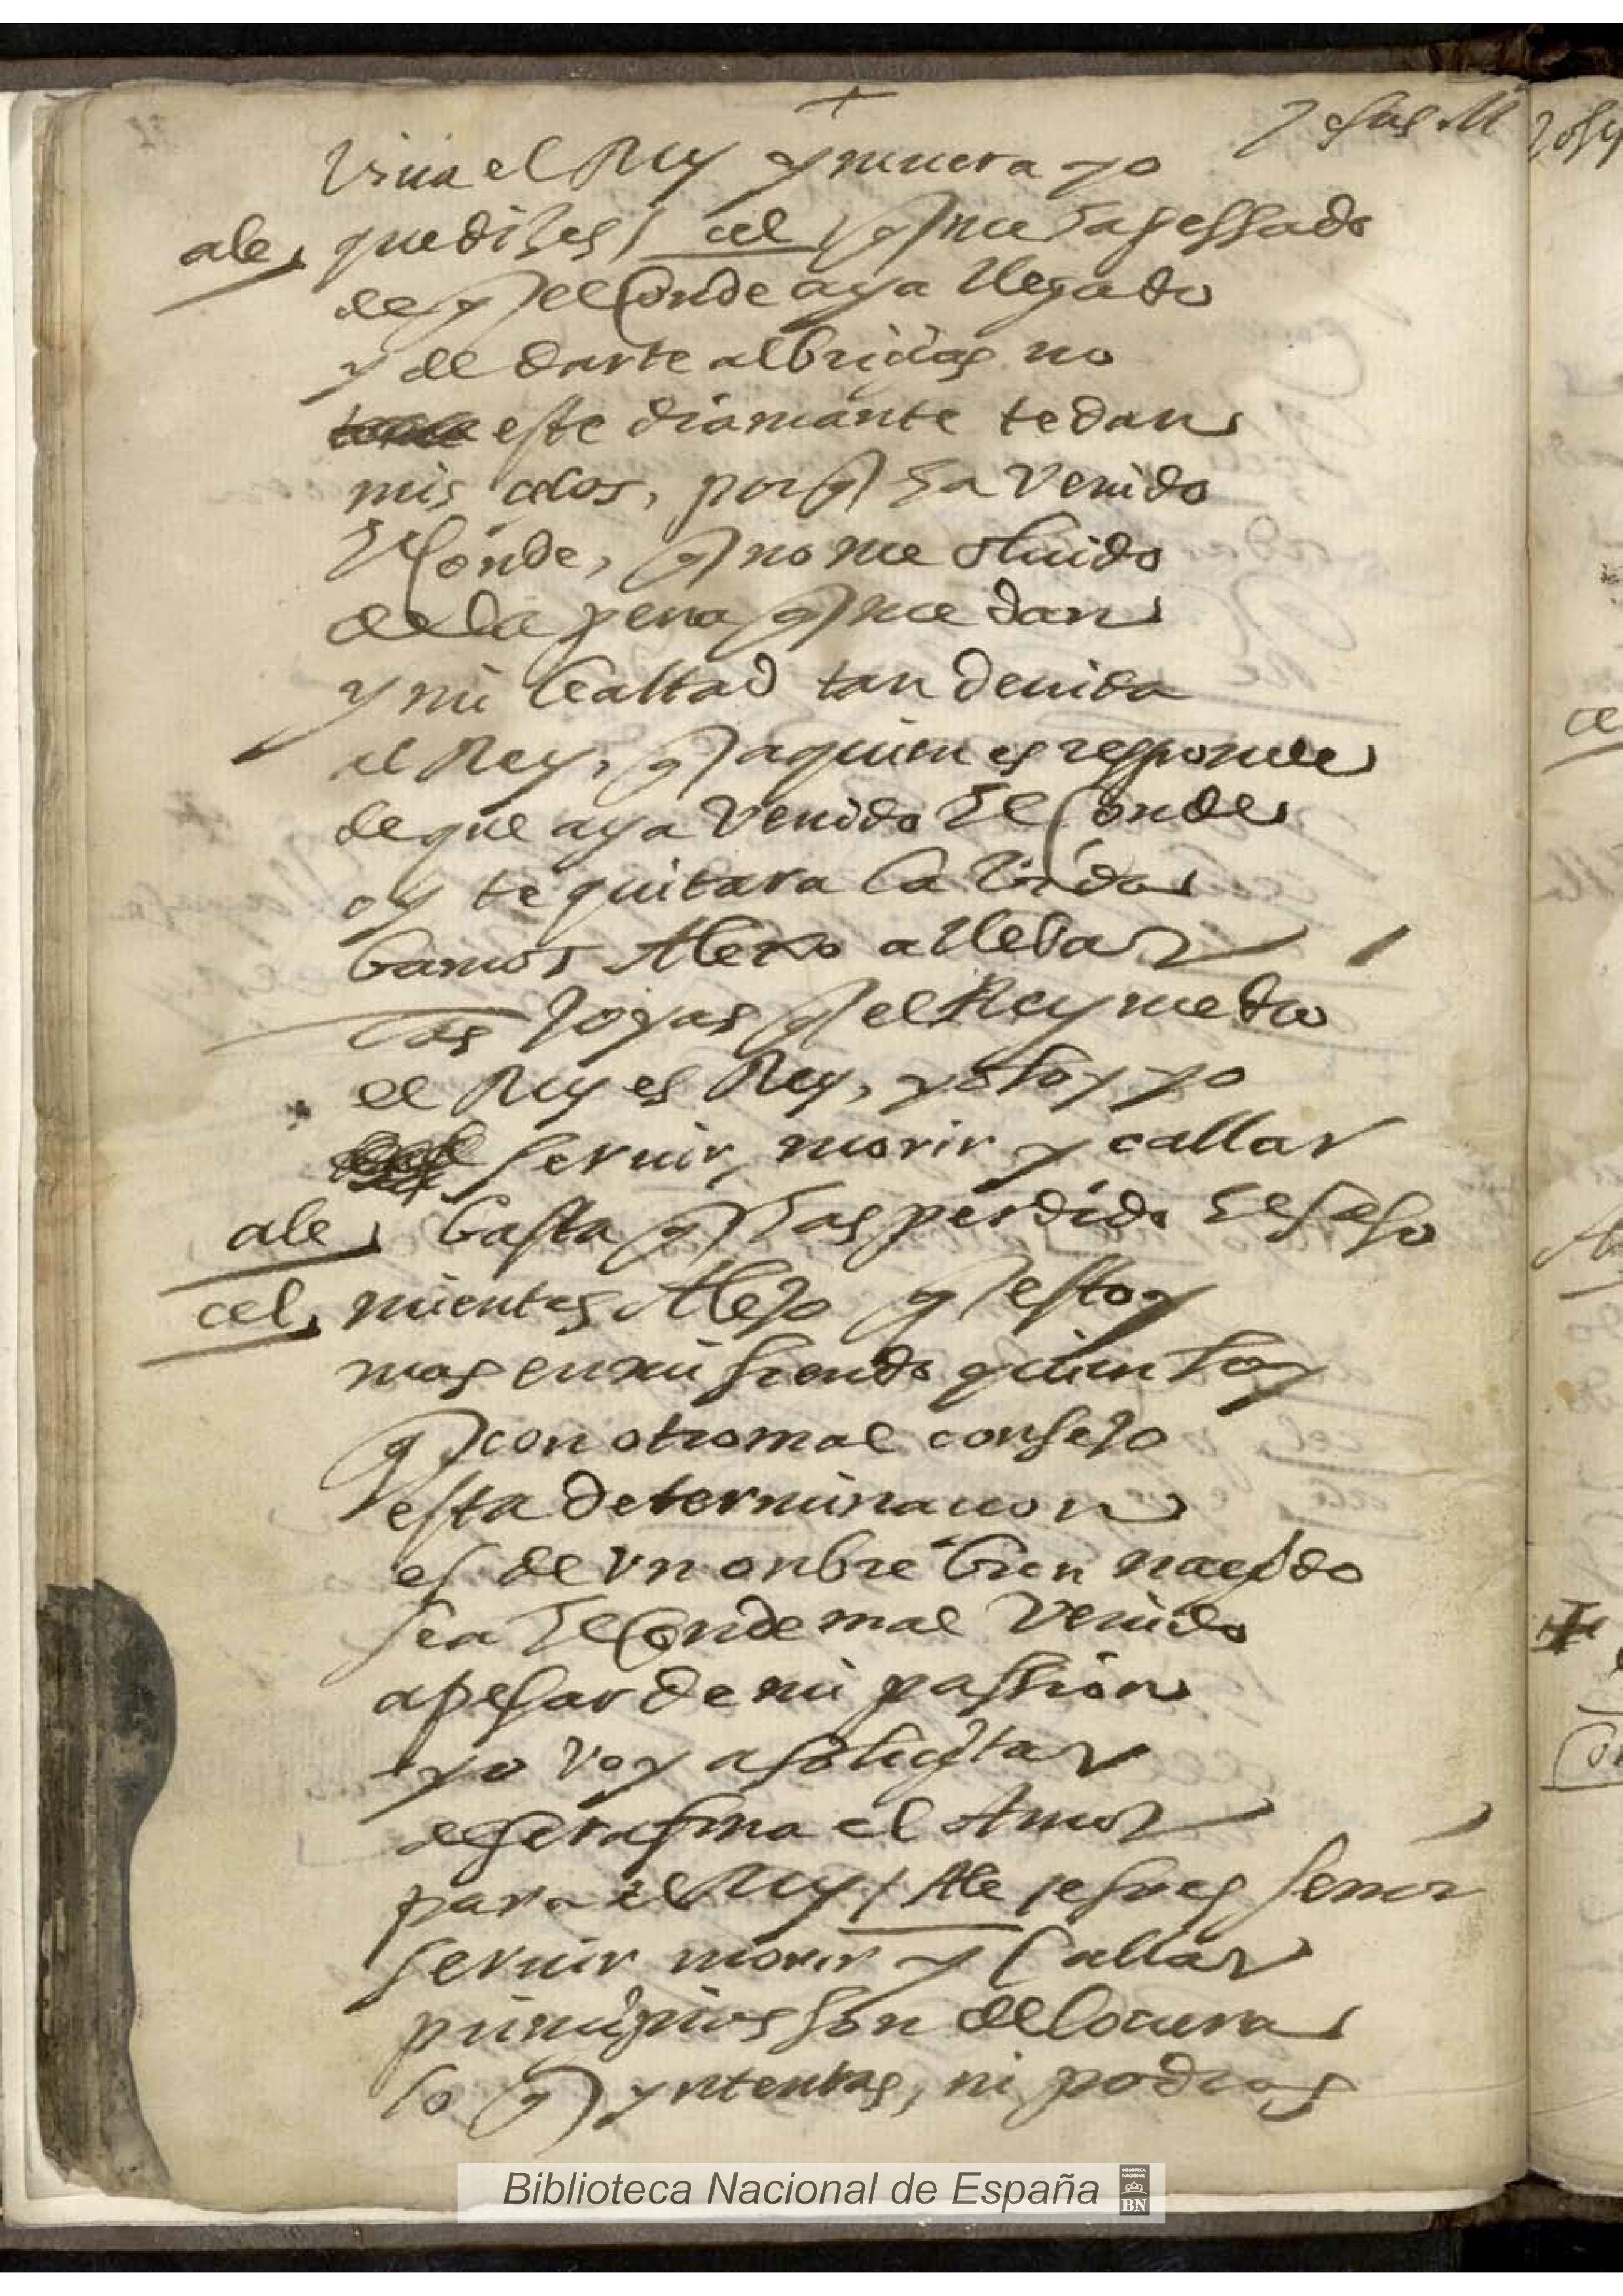 +
Jesus M
viua el Rey y muera yo
ale, que dizes / cel / q me ha pessado
de q el Conde aya llegado
y de darte albricias no
este diamante te dan
mis celos, porq ha venido
El Conde, q no me oluido
de la pena q me dan
y mi lealtad tan deuida
al Rey, q a quien es responde
de que aya venido El Conde
oy te quitara la vida
bamos Alexo a llebar
las joyas q el Rey me dio
el Rey es Rey, yo soy yo
seruir, morir y callar
ale, basta q has perdido El seso
cel, mientes Alejo q estoy
mas en mi siendo quien soy
q con otro mal consejo
esta determinacion
es de vn onbre bien nacido
sea El Conde mal venido
a pesar de mi passion
yo voy a solicitar
de serafina el Amor
para el Rey / Ale / esso es señor
seruir morir y Callar
principios son de locura
lo q yntentas, ni podras
cel
Biblioteca Nacional de España
BN